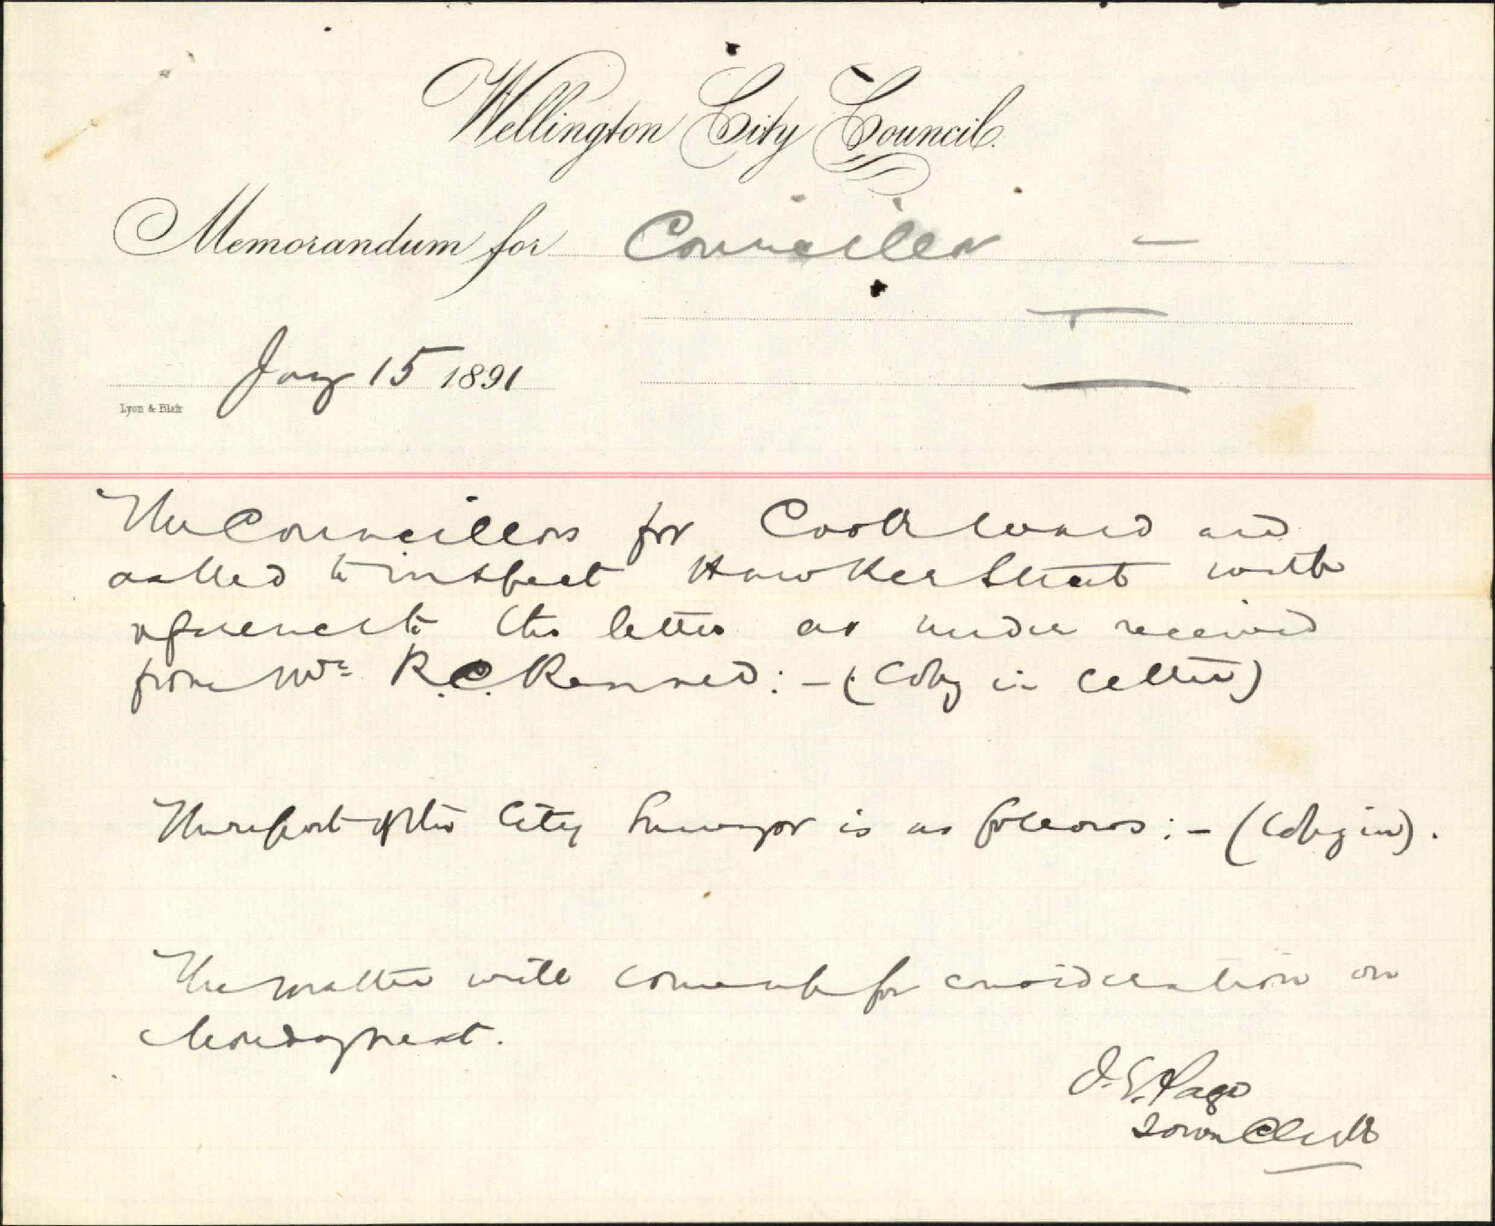 Wellington City Council.
Memorandum for Councillor —
Jany 15 1891
Lyon & Blair
The Councillors for Cook Ward are
asked to inspect Hawker Street with
reference to the letter as under received
from Mr R.C. Renner: – (Copy in letter)
The report of the City Surveyor is as follows: – (Copy in).
The matter will come up for consideration on
Monday next.
J.E. Page
Town Clerk